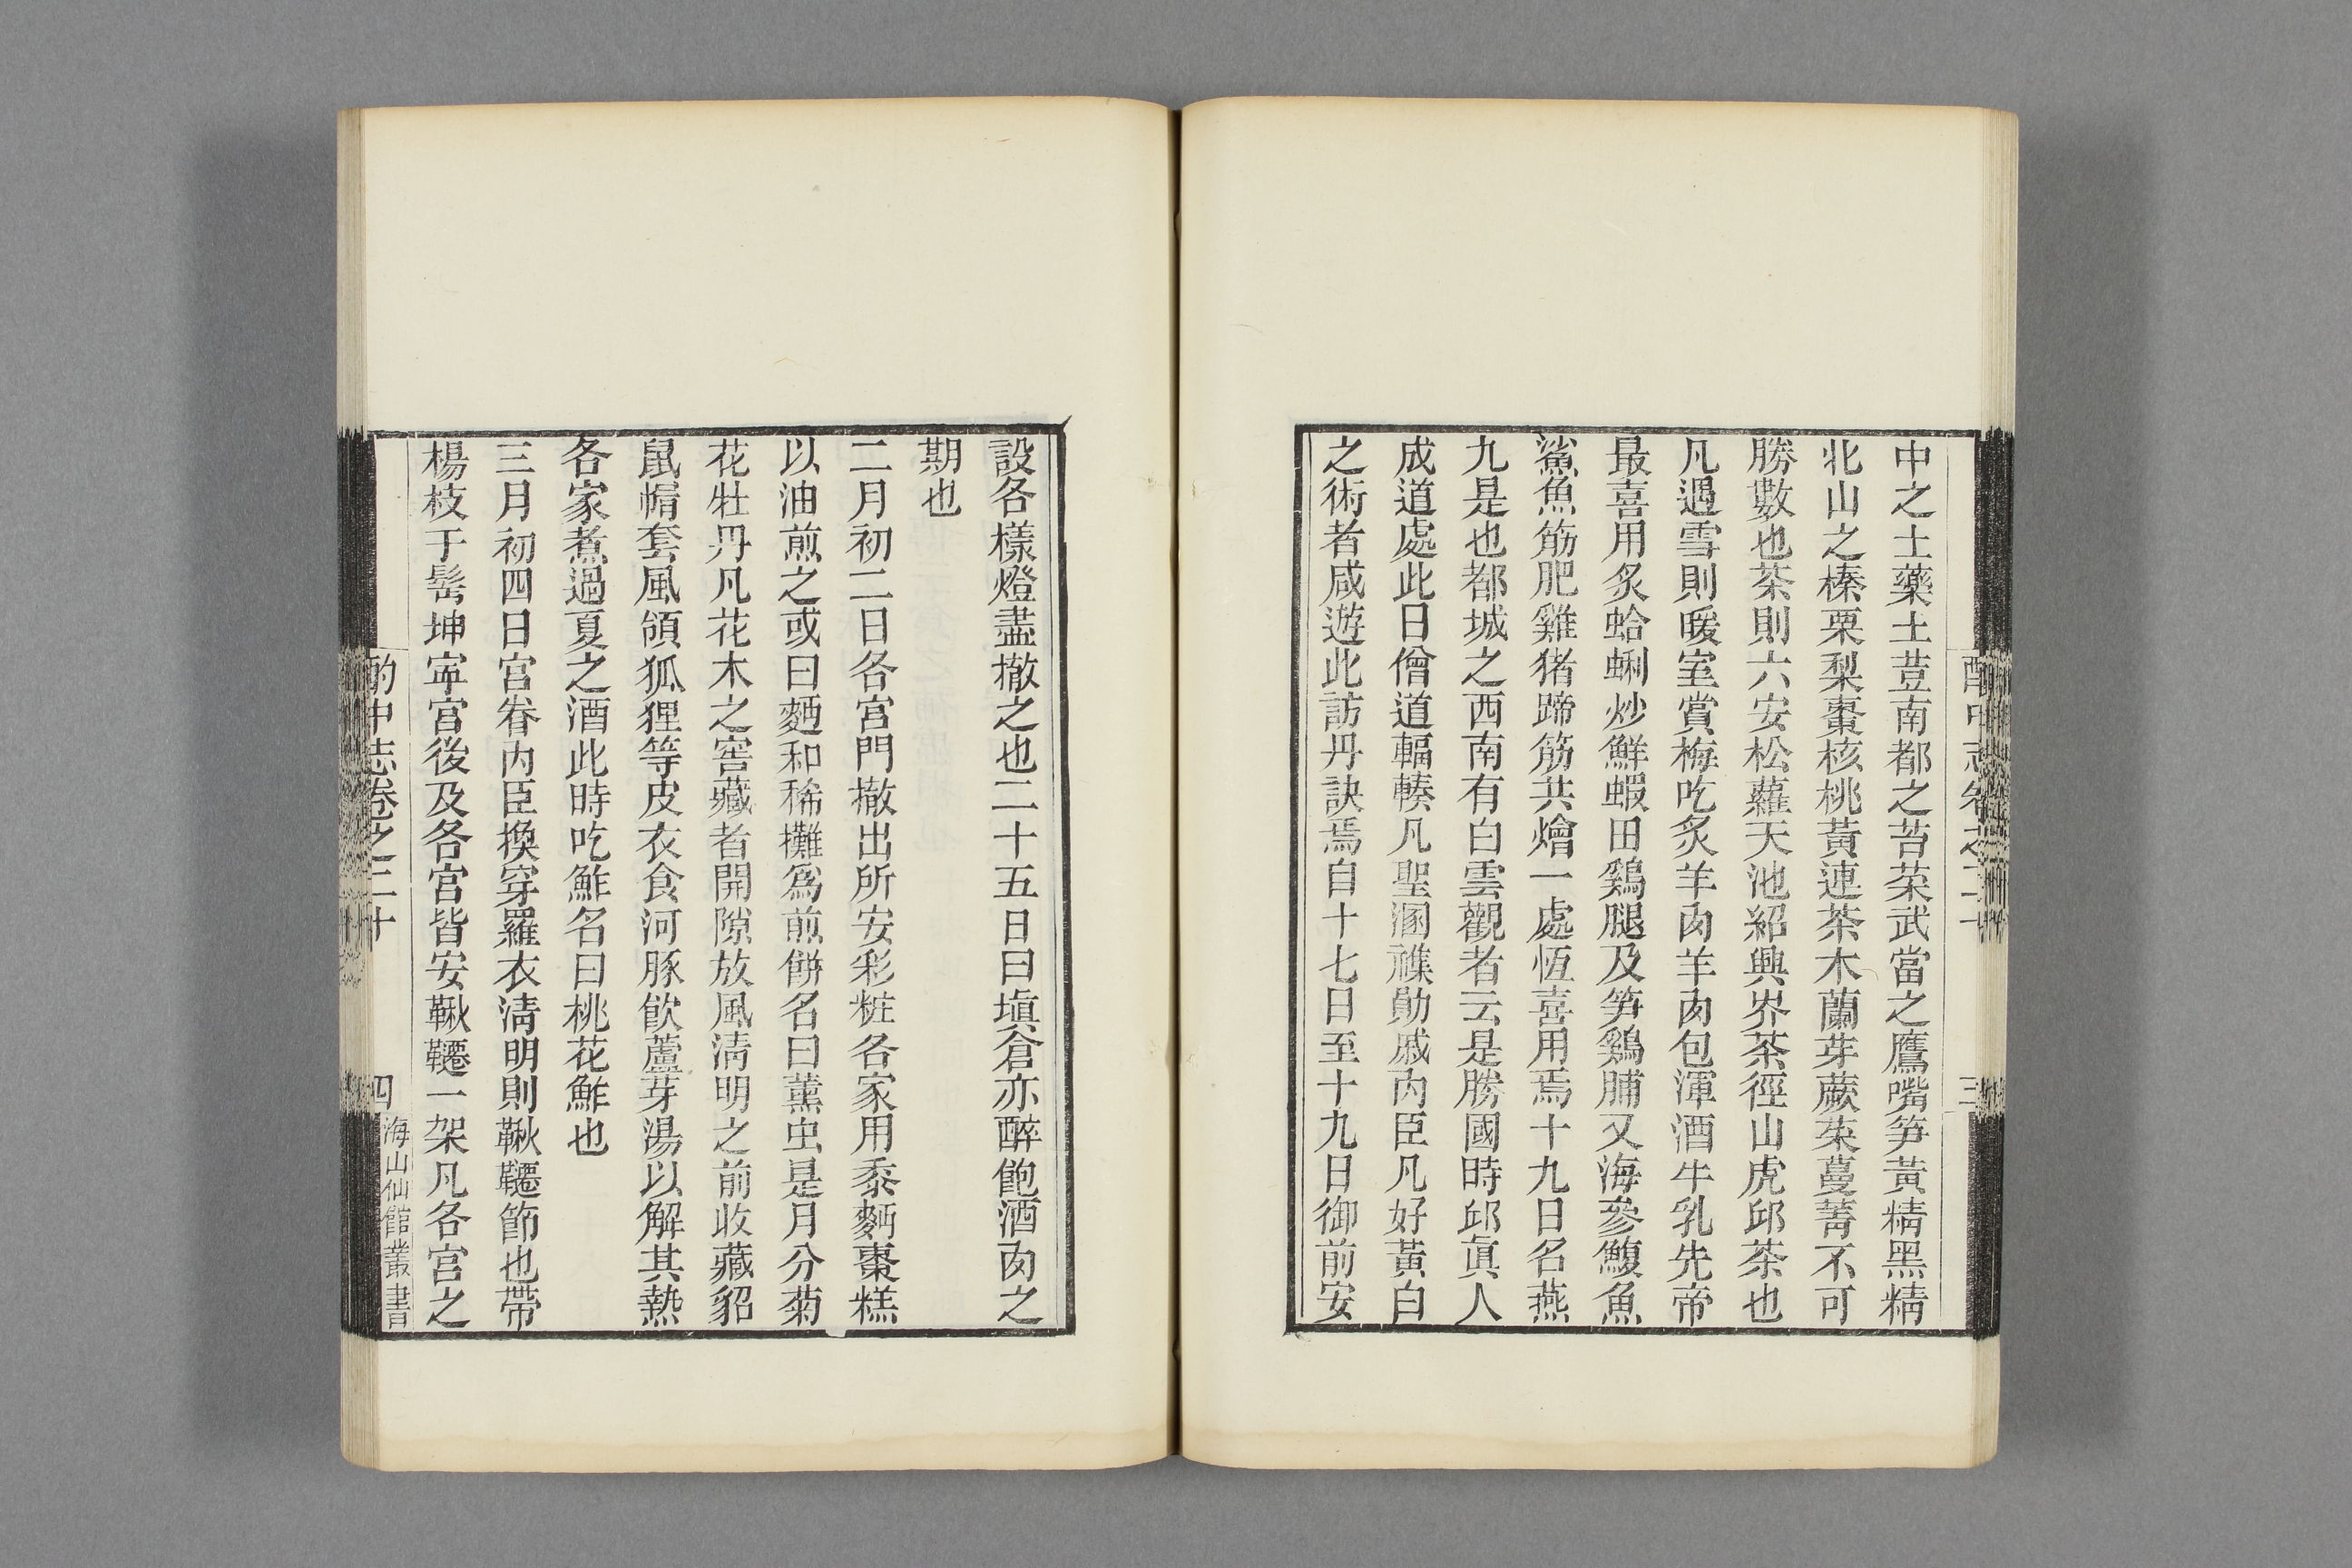 酌中志卷之二十
三
中之土藥土荳南都之苔菜武當之鷹嘴笋黃精黑精
北山之榛栗梨棗核桃黃連茶木蘭芽蕨菜蔓菁不可
勝數也茶則六安松蘿天池紹興岕茶徑山虎邱茶也
凡遇雪則暖室賞梅吃炙羊肉羊肉包渾酒牛乳先帝
最喜用炙蛤蜊炒鮮蝦田鷄腿及笋鷄脯又海參鰒魚
鯊魚筋肥雞猪蹄筋共燴一處恆喜用焉十九日名燕
九是也都城之西南有白雲觀者云是勝國時邱眞人
成道處此日僧道輻輳凡聖溷襍勛戚內臣凡好黃白
之術者咸遊此訪丹訣焉自十七日至十九日御前安
設各樣燈盡撤之也二十五日曰塡倉亦醉飽酒肉之
期也
二月初二日各宮門撤出所安彩粧各家用黍麪棗糕
以油煎之或曰麪和稀攤爲煎餅名曰薰虫是月分菊
花牡丹凡花木之窖藏者開隙放風淸明之前收藏貂
鼠帽套風領狐狸等皮衣食河豚飮蘆芽湯以解其熱
各家煮過夏之酒此時吃鮓名曰桃花鮓也
三月初四日宮眷內臣換穿羅衣淸明則鞦韆節也帶
楊枝于髩坤寜宮後及各宮皆安鞦韆一架凡各宮之
酌中志卷之二十
四
海山仙館叢書